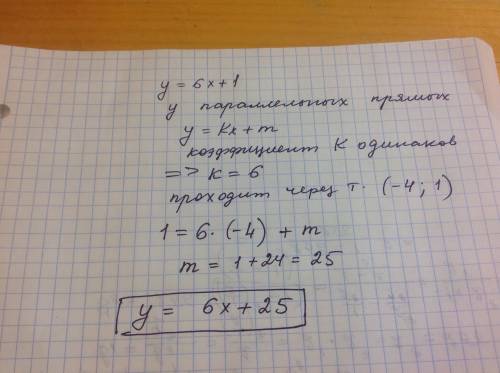 y = 6x+1
у параллельных прямых
y = Kx + m
коэффициент K одинаков
=> K = 6
проходит через т. (-4; 1)
1 = 6 · (-4) + m
m = 1 + 24 = 25
y = 6x + 25